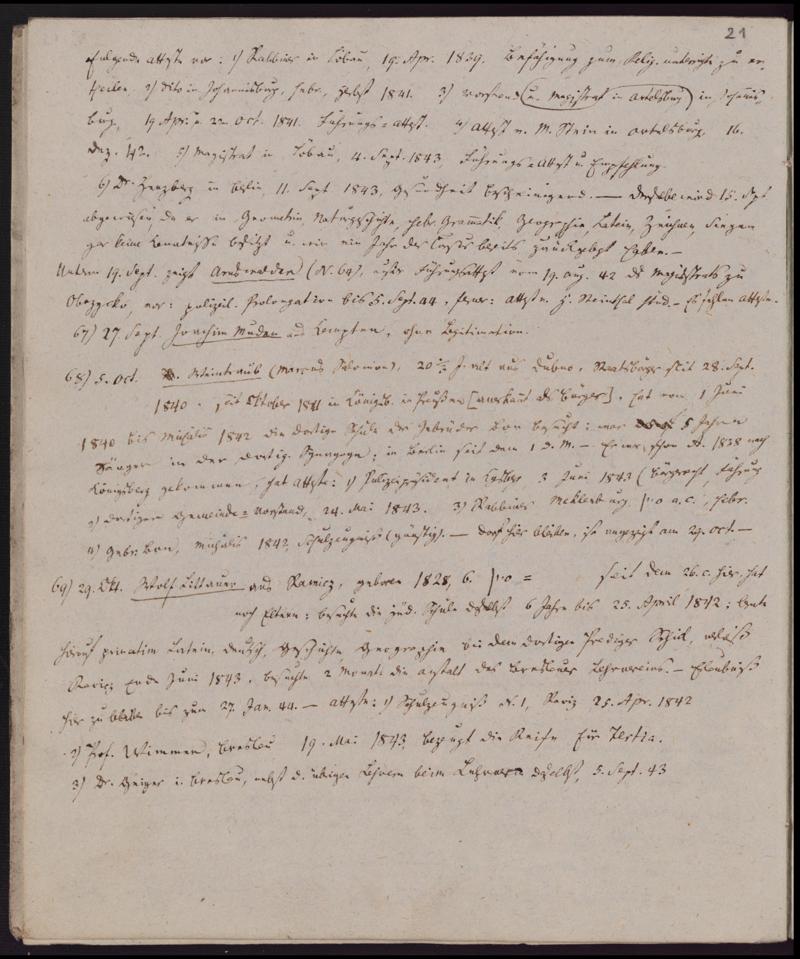 21
folgende Atteste vor: 1) Rabbiner in Löbau, 19. Apr. 1839. Befähigung zum Relig. unterricht zu er-
theilen, 2) dito in Johannisburg, hebr., Herbst 1841. 3) Vorstand (u. Magistrat in Ortelsburg) in Johannis-
burg, 19 Apr. u. 22 Oct. 1841. Führungs-Attest. 4) Attest v. M. Stein in Ortelsburg, 16.
Dez. 42. 5) Magistrat in Löbau, 4. Sept. 1843, Führungs-Attest u. Empfehlung.
6) Dr. Herzberg in Berlin, 11. Sept 1843, Gesundheit bescheinigend. — Derselbe wird 15. Spt
abgewiesen, da er in Geometrie, Naturgeschichte, hebr. Grammatik, Geographie, Latein, Zeichnen, Singen
gar keine Kenntnisse besitzt u. nur ein Jahr des Cursus bereits zurückgelegt haben. —
Unterm 19. Sept. zeigt (N. 64), außer Führungsattest vom 19. Aug. 42 des Magistrats zu
vor: polizeil. Prolongation bis 5. Sept. 44, ferner: Attest v. H. Steinthal stud. – Es fehlen Atteste.
67) 27. Sept. Joachim Muden aus Kempten, ohne Legitimation.
68) 5. Oct. Weintraub (Marcus Salomon), 20 J. alt aus Dubno, Staatsbürger seit 28. Sept.
1840, seit Oktober 1841 in Königsb. in Preußen [anerkannt als Bürger], hat vom 1 Juni
1840 bis Michalis 1842 die dortige Schule der Gebrüder besucht; war 5 Jahre
Sänger in der dortig. Synagoge; in Berlin seit dem 1 d. M. — Er war schon A. 1838 nach
Königsberg gekommen, hat Atteste: 1) Polizeipräsident in 3 Juni 1843 (Bürgerrecht, Führung
2) dortigen Gemeinde-Vorstand, 24. Mai 1843. 3) Rabbiner Mecklenburg a. c., hebr.
4) Gebr. Michalis 1842, Schulzeugniß (günstig). — Darf hier bleiben, ist angezeigt am 29. Oct. —
69) 29. Okt. Wolf Littauer aus Rawicz, geboren 1828, 6. = seit dem 26. c. hier, hat
noch Eltern; besuchte die jüd. Schule daselbst 6 Jahre bis 25. April 1842; lernte
hierauf privatim Latein, deutsch, Geschichte, Geographie bei dem dortigen Prediger Schück, verließ
Rawicz Ende Juni 1843, besuchte 2 Monate die Anstalt des Breslauer Lehrvereins. — Erlaubniß
hier zu bleiben bis zum 27. Jan. 44. — Atteste: 1) Schulzeugniß N. 1, Rawicz 25. Apr. 1842
2) Prof. Wimmer, Breslau 19. Mai 1843, bezeugt die Reife für Tertia.
3) Dr. Geiger i. Breslau, nebst d. übrigen Lehrern beim daselbst, 5. Sept. 43